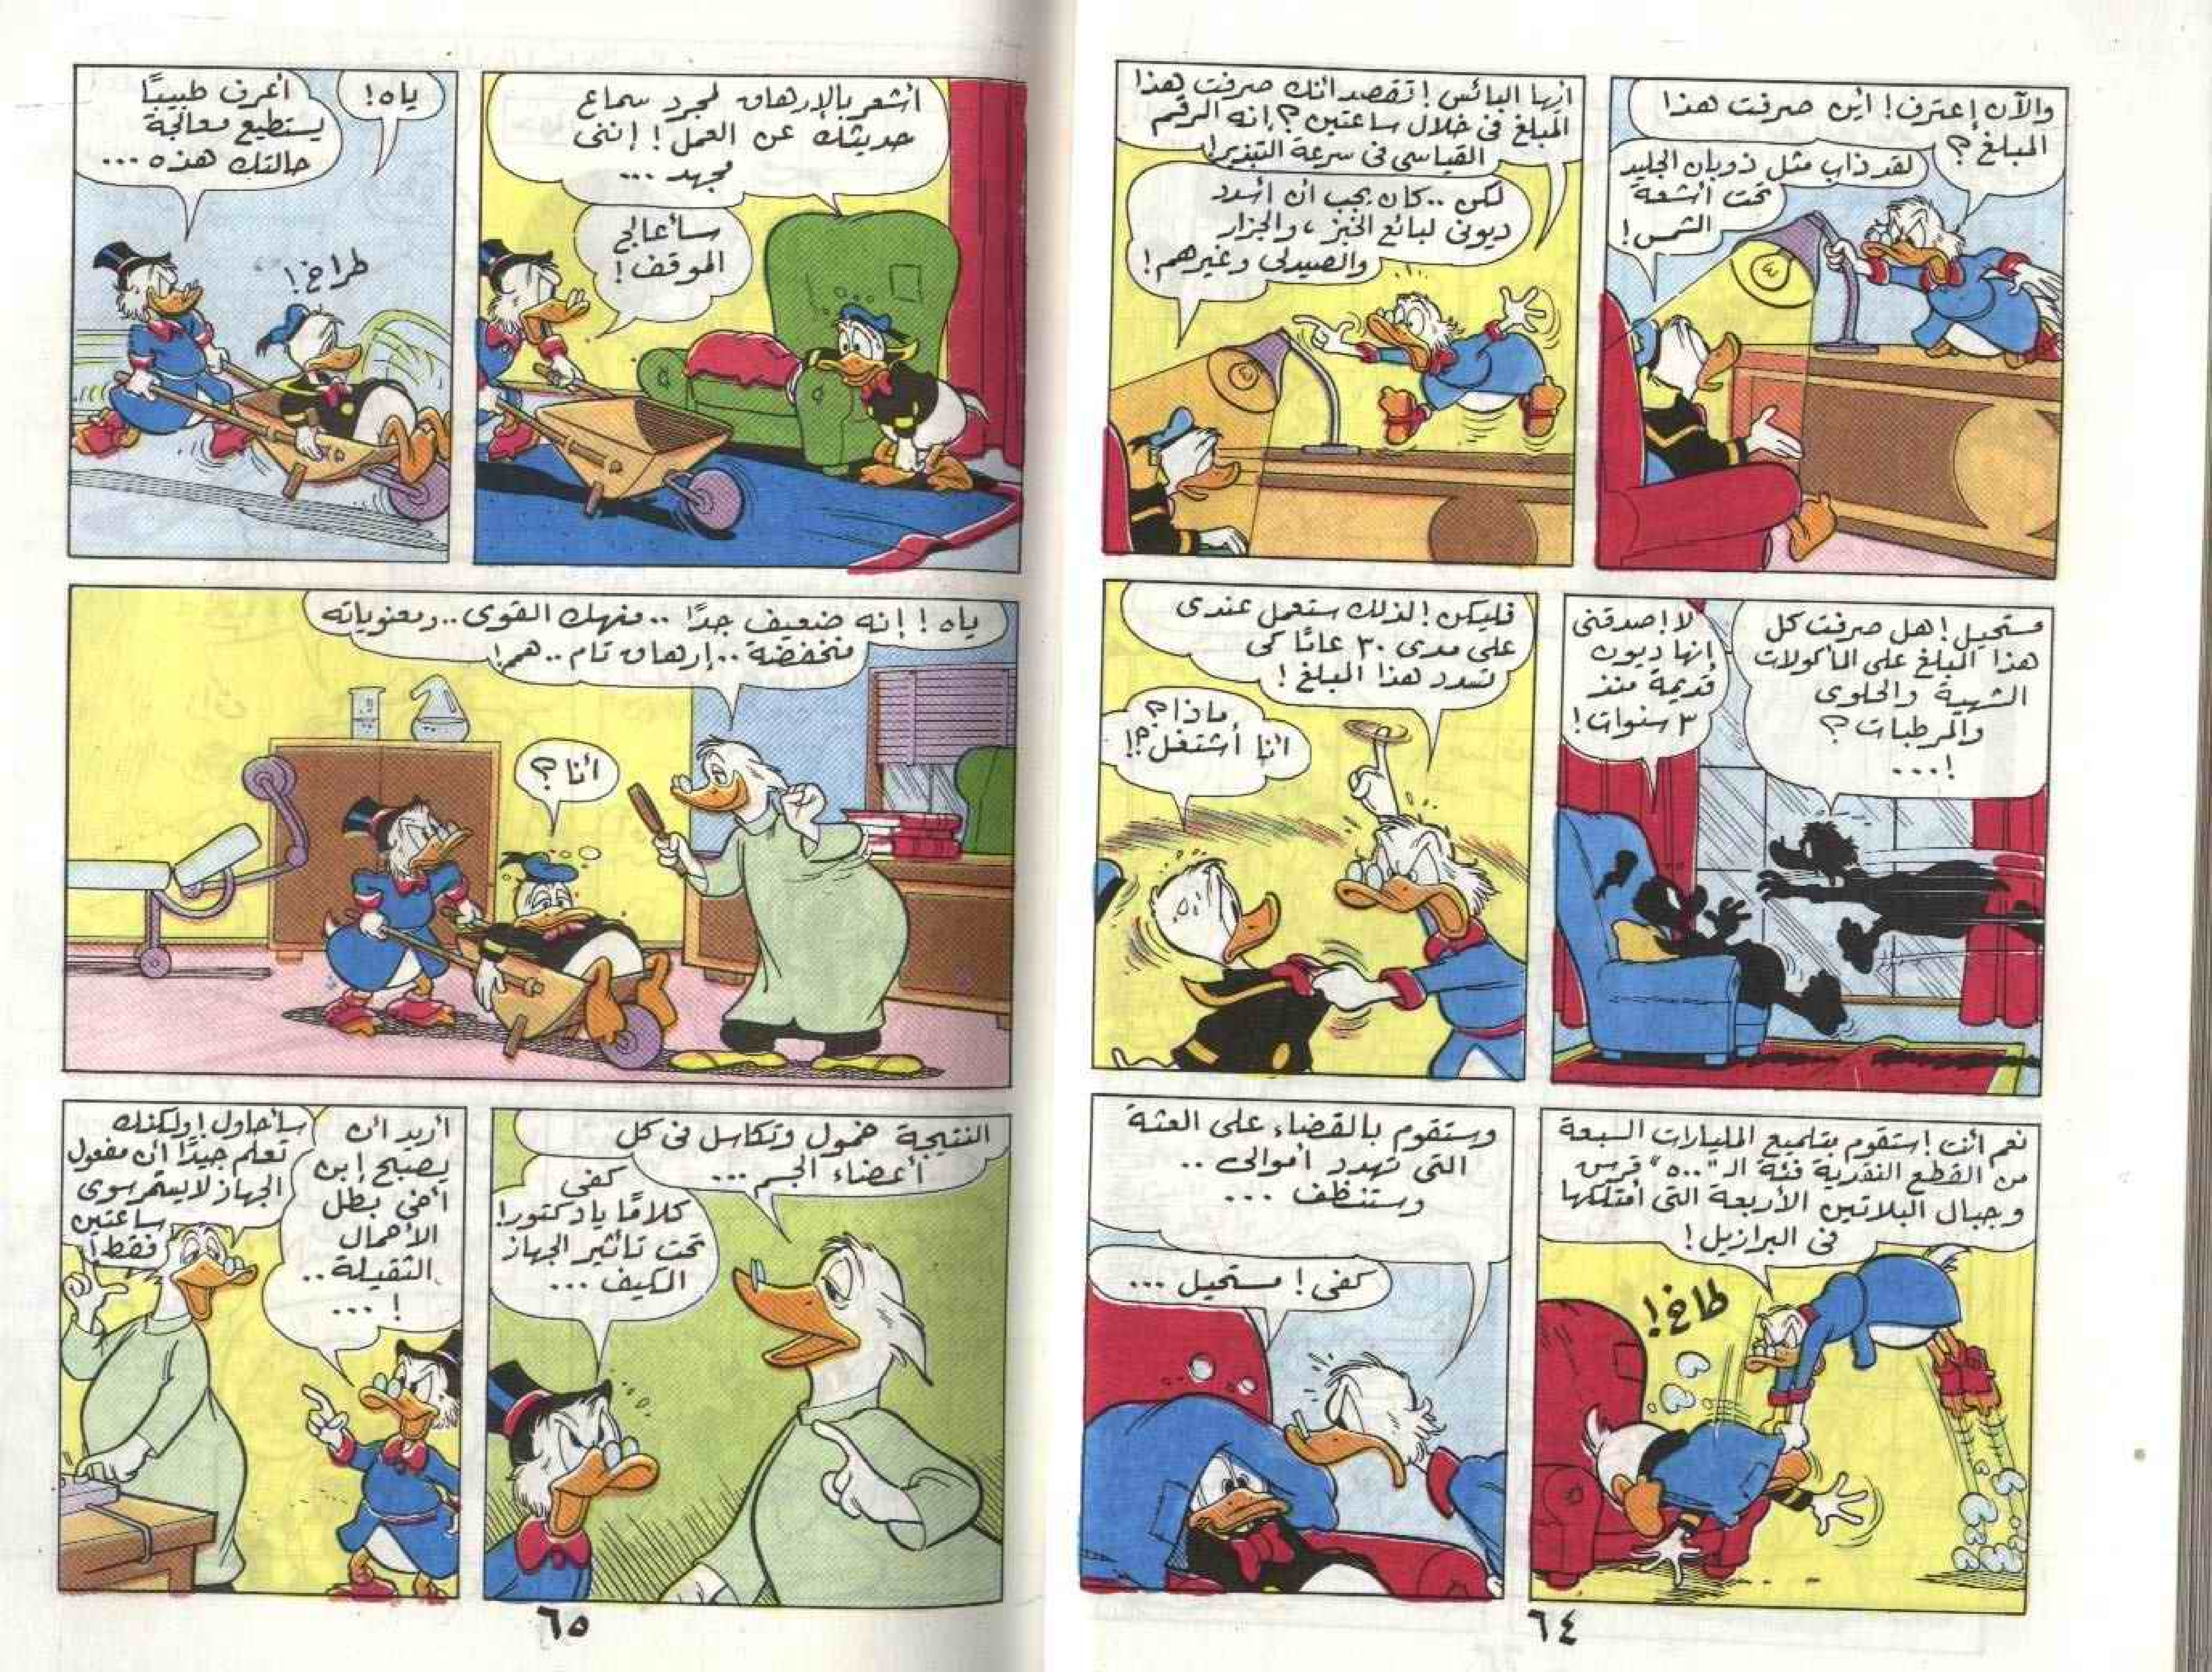 والآن إعترف! أين صرفت هذا
المبلغ؟
لقد ذاب مثل ذوبان الجليد
تحت أشعة
الشمس!
أيها البائس! أتقصد أنك صرفت هذا
المبلغ في خلال ساعتين؟! إنه الرقم
القياسى فى سرعة التبذير!
لكن.. كان يجب أن أسدد
ديونى لبائع الخبز، والجزار
والصيدلى وغيرهم!
مستحيل! هل صرفت كل
هذا المبلغ على المأكولات
الشهية والحلوى
والمرطبات؟
...!
لا! صدقنى
إنها ديون
قديمة منذ
٣ سنوات!
فليكن! لذلك ستعمل عندى
على مدى ٣٠ عامًا كى
تسدد هذا المبلغ!
ماذا؟
أنا أشتغل؟!
نعم أنت! ستقوم بتلميع المليارات السبعة
من القطع النقدية فئة الـ "٥٠٠" قرش
وجبال البلاتين الأربعة التى أمتلكها
فى البرازيل!
طاخ!
وستقوم بالقضاء على العثة
التى تهدد أموالى ..
وستنظف ...
كفى! مستحيل ...
٦٤
أشعر بالإرهاق لمجرد سماع
حديثك عن العمل! إننى
مجهد ...
سأعالج
الموقف!
ياه!
أعرف طبيبًا
يستطيع معالجة
حالتك هذه ...
طراخ!
ياه! إنه ضعيف جدًا .. منهك القوى .. ومعنوياته
منخفضة .. إرهاق تام .. هم!
أنا؟
النتيجة خمول وتكاسل فى كل
أعضاء الجسم ...
كفى
كلامًا يا دكتور!
تحت تأثير الجهاز
الكيف ...
أريد أن
يصبح إبن
أخى بطل
الأحمال
الثقيلة ..
... !
سأحاول! ولكنك
تعلم جيدًا أن مفعول
الجهاز لا يستمر سوى
ساعتين
فقط!
٦٥